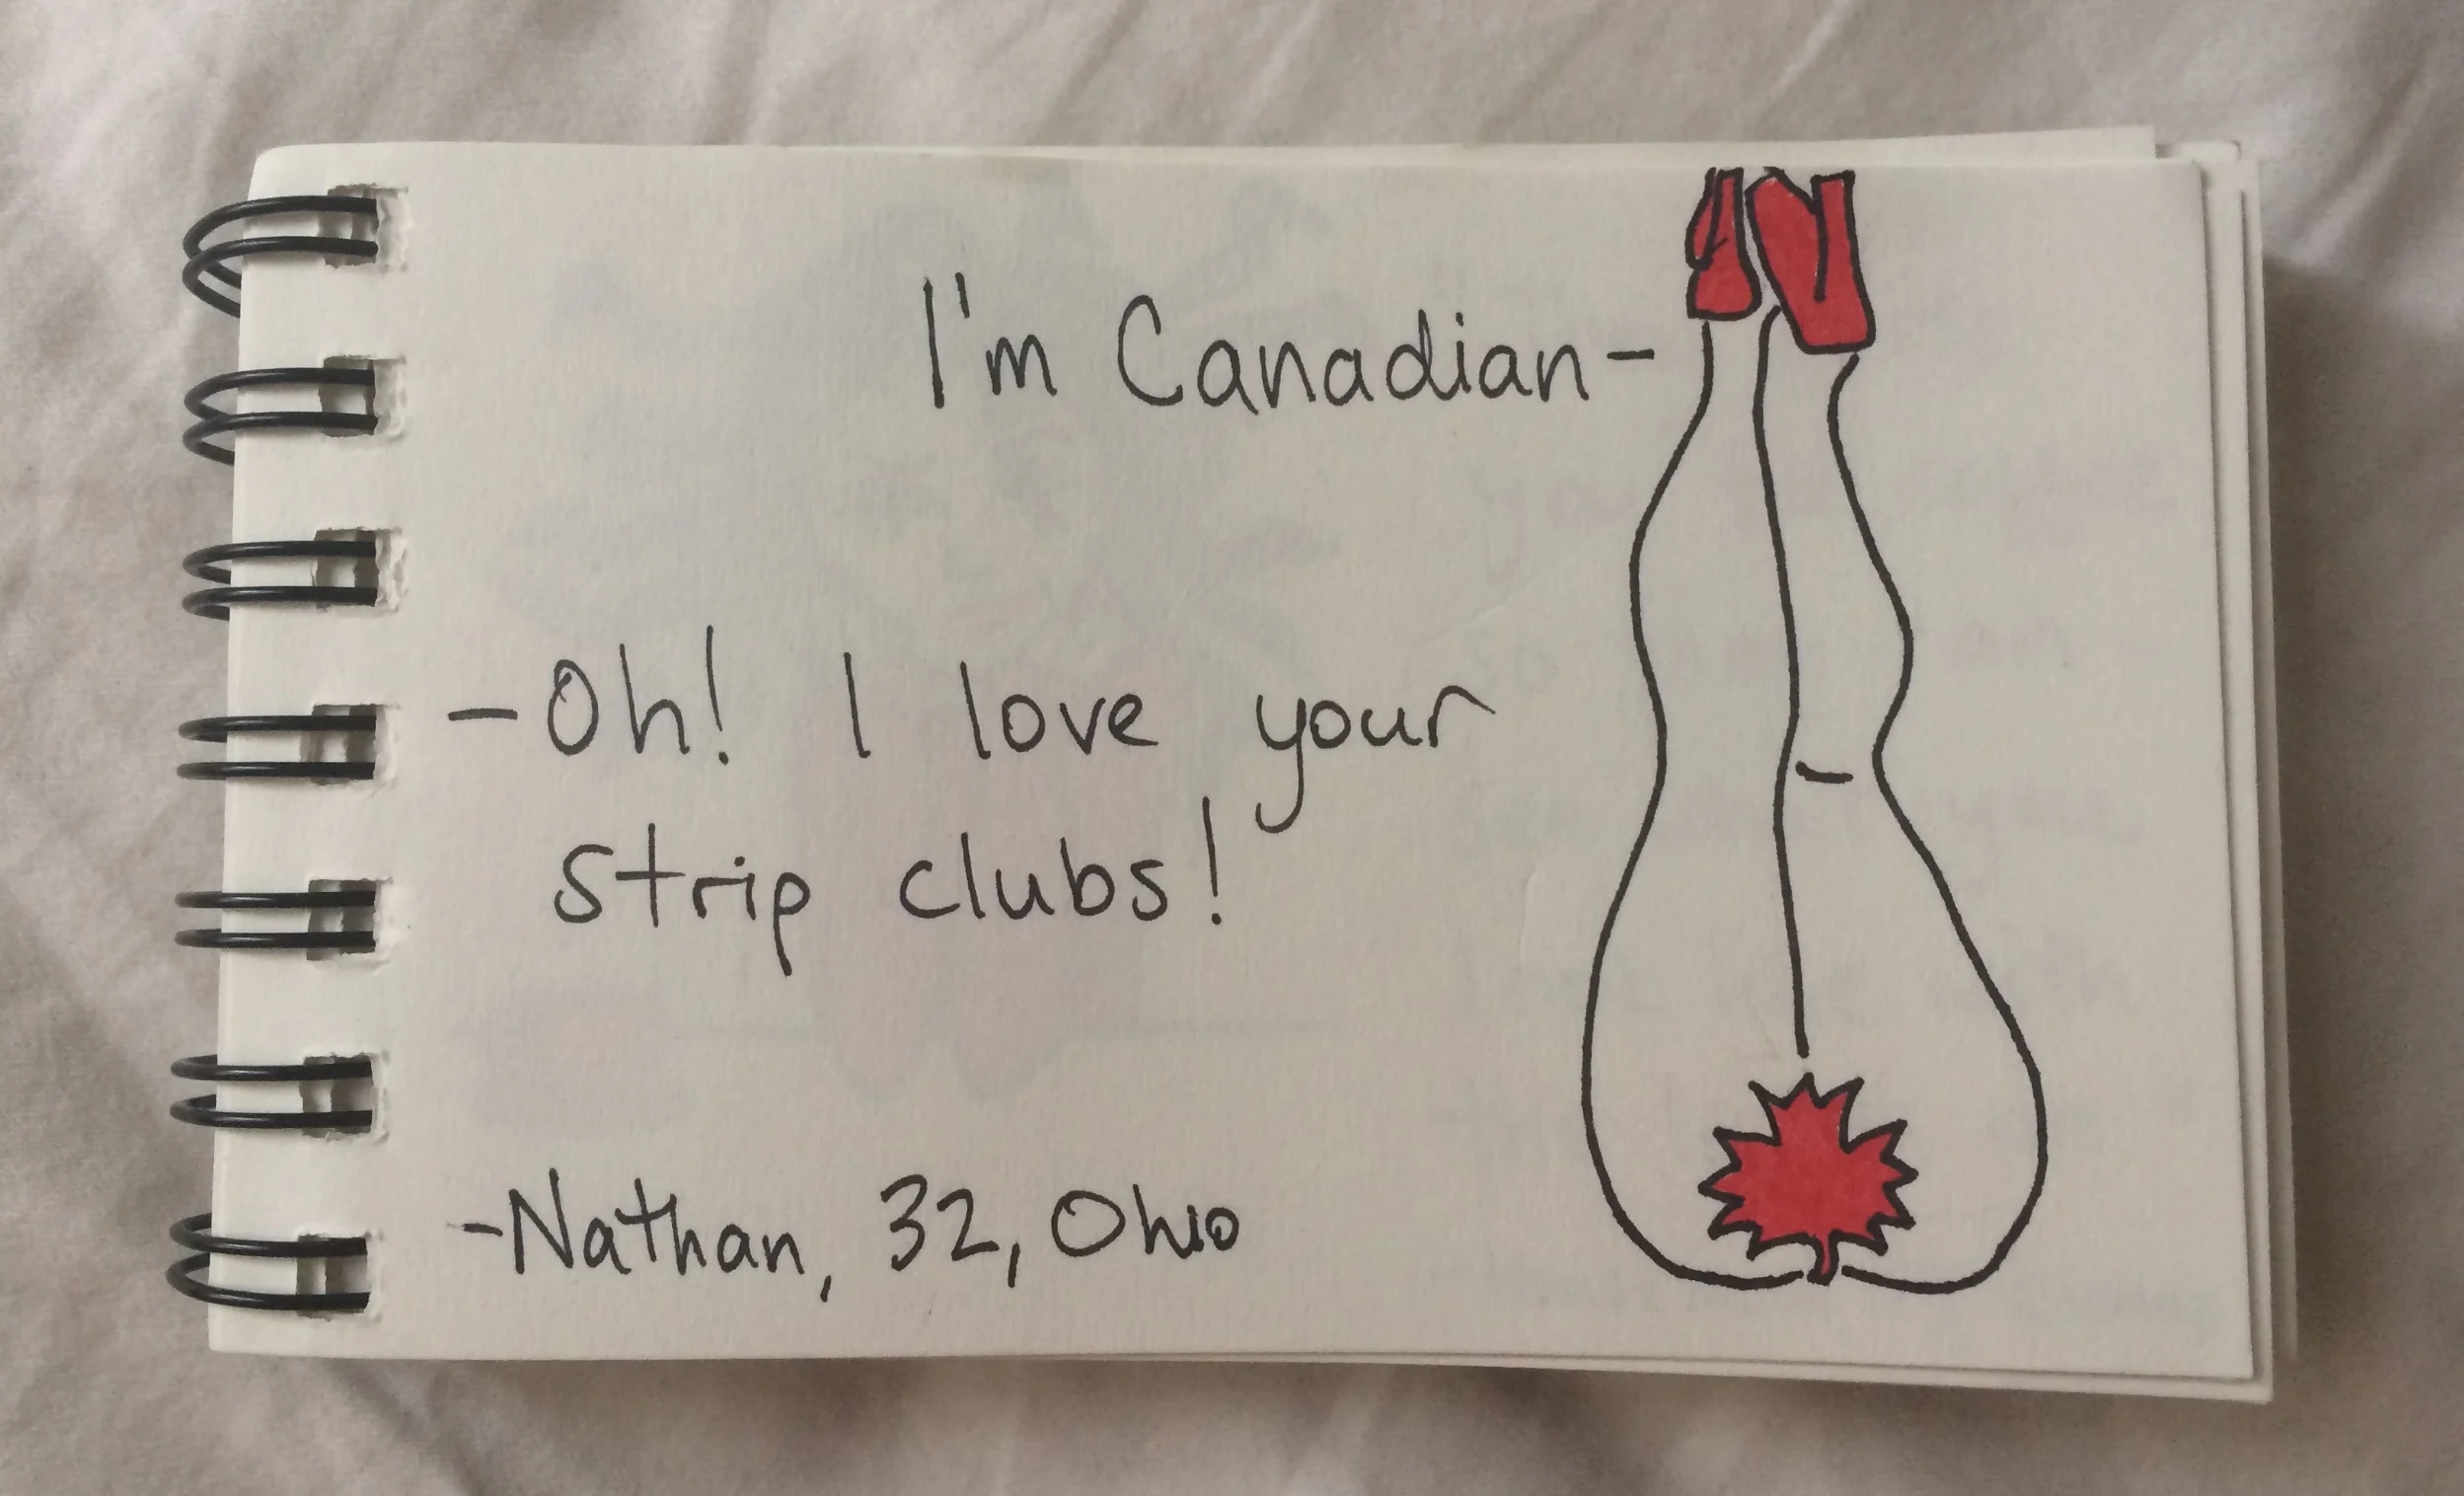 I'm Canadian-
-Oh! I love your
strip clubs!
-Nathan, 32, Ohio